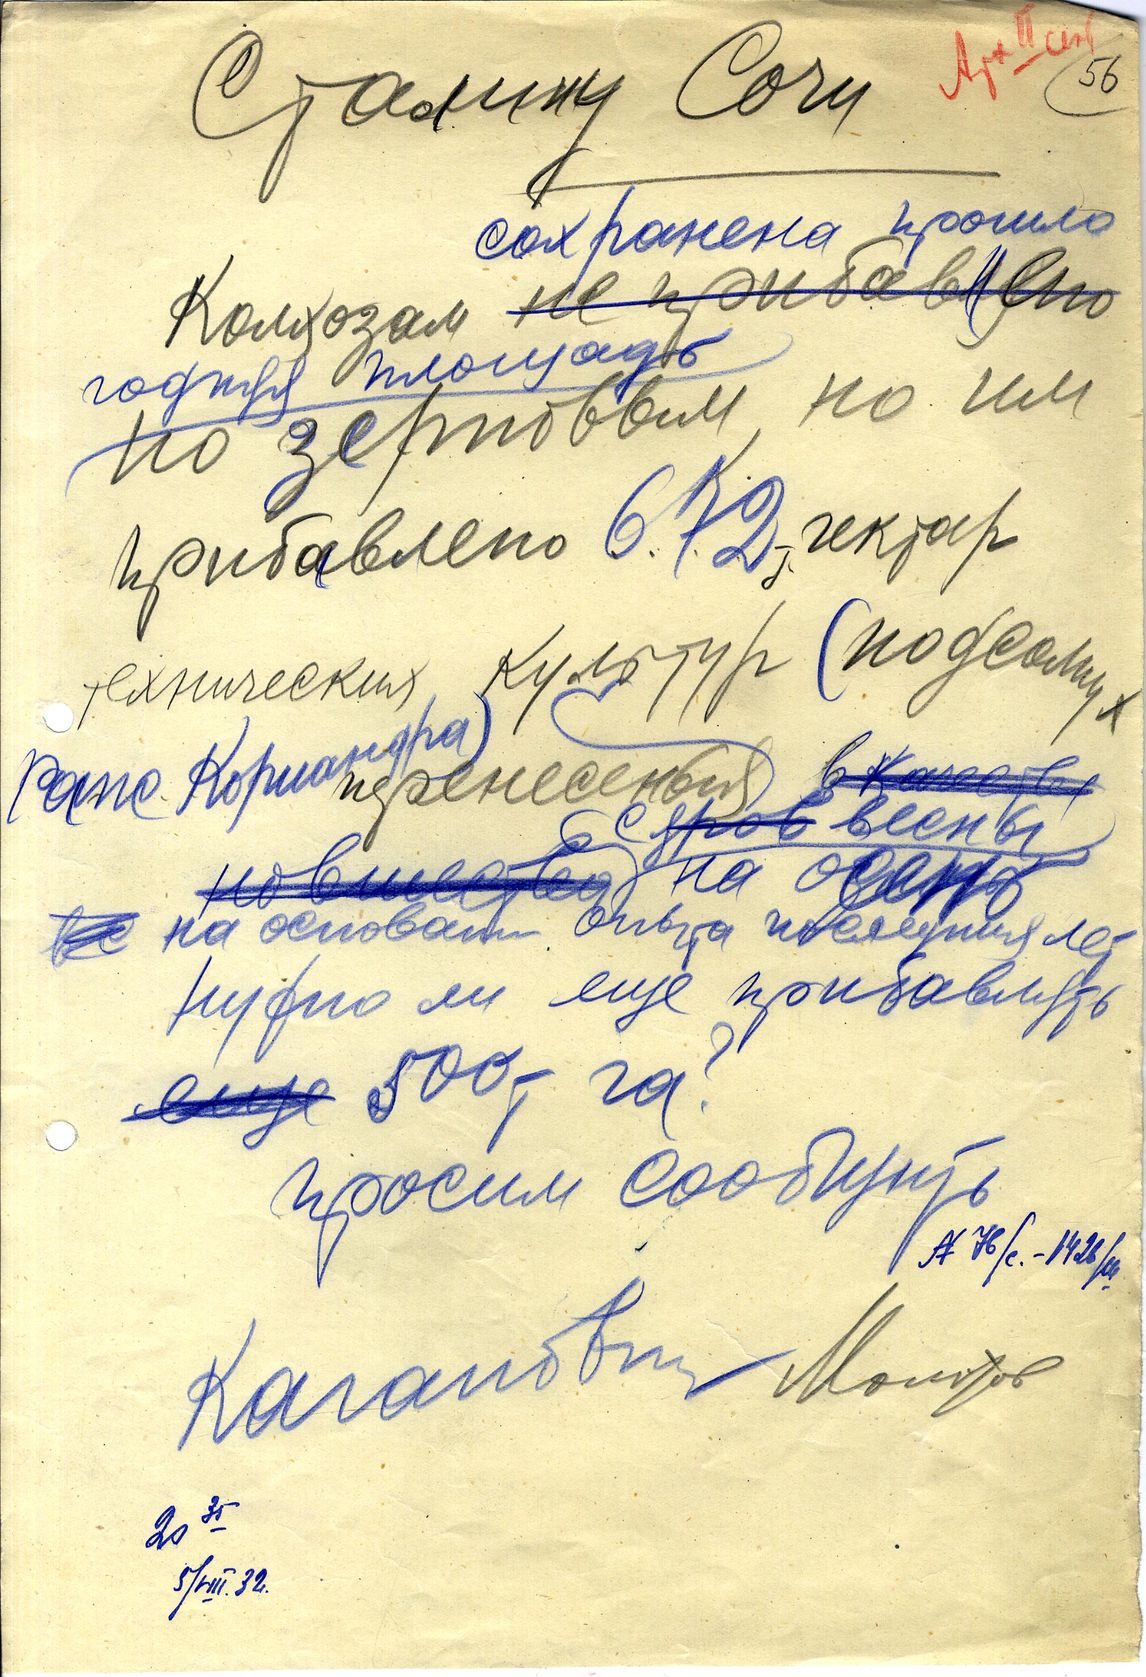 Арх II сект
56
Сталину Сочи
сохранена прошло
Колхозам не прибавлено
годняя площадь
по зерновым, но им
прибавлено 672 т. гектар
технических культур (подсолнух
рапс. Кориандра)
перенесенных в качестве
с весны
новшества на осень
на основании опыта последних лет
Нужно ли еще прибавить
еще 500 т га?
просим сообщить
Каганович Молотов
20 35
5/VIII.32.